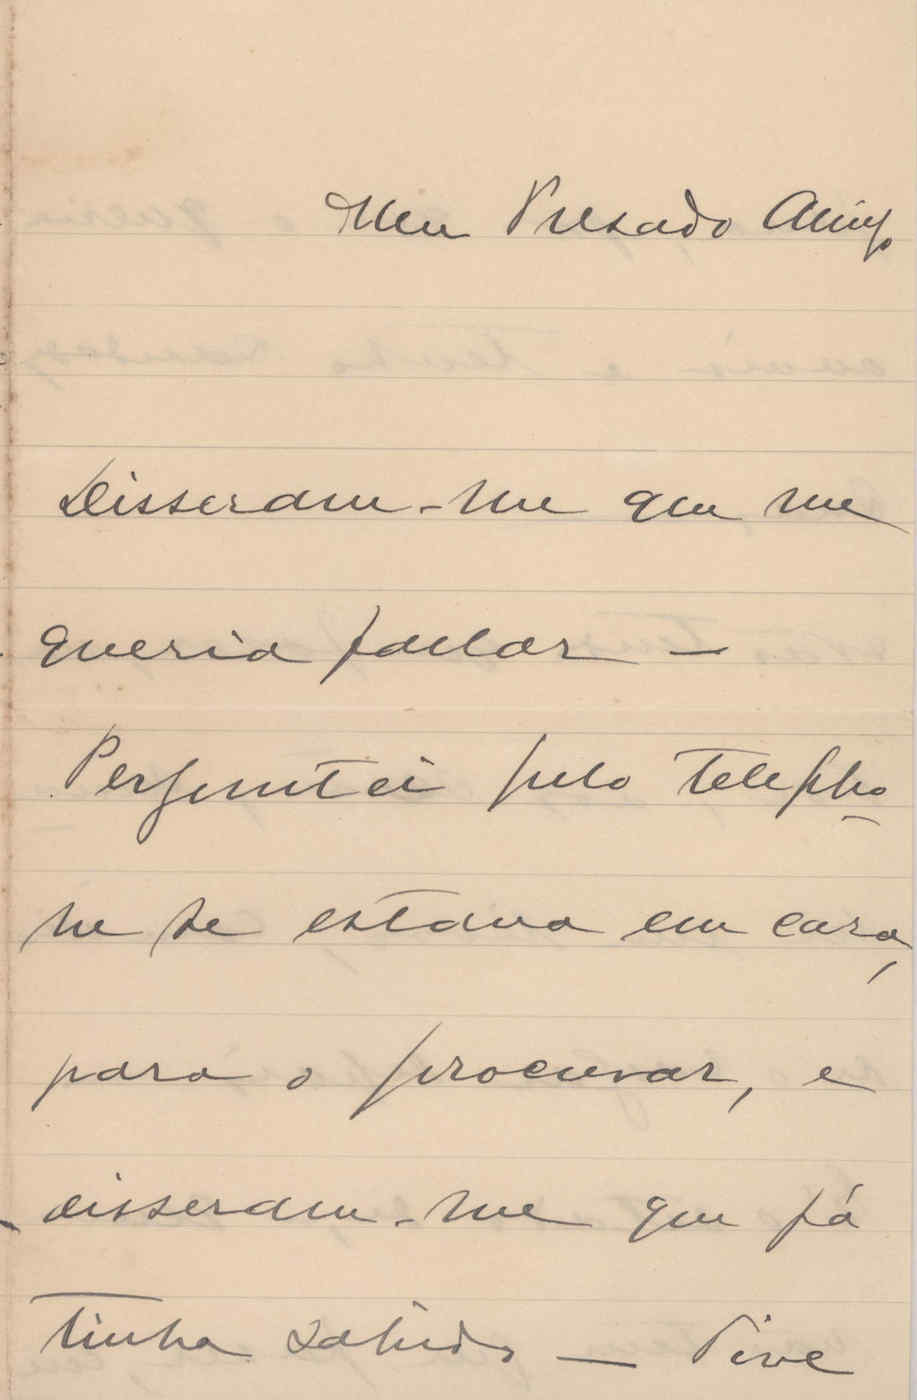 Meu Presado Amigo
Disseram-me que me
queria fallar —
Perguntei pelo telepho-
ne se estava em casa,
para o procurar, e
disseram-me que já
tinha sahido — Tive